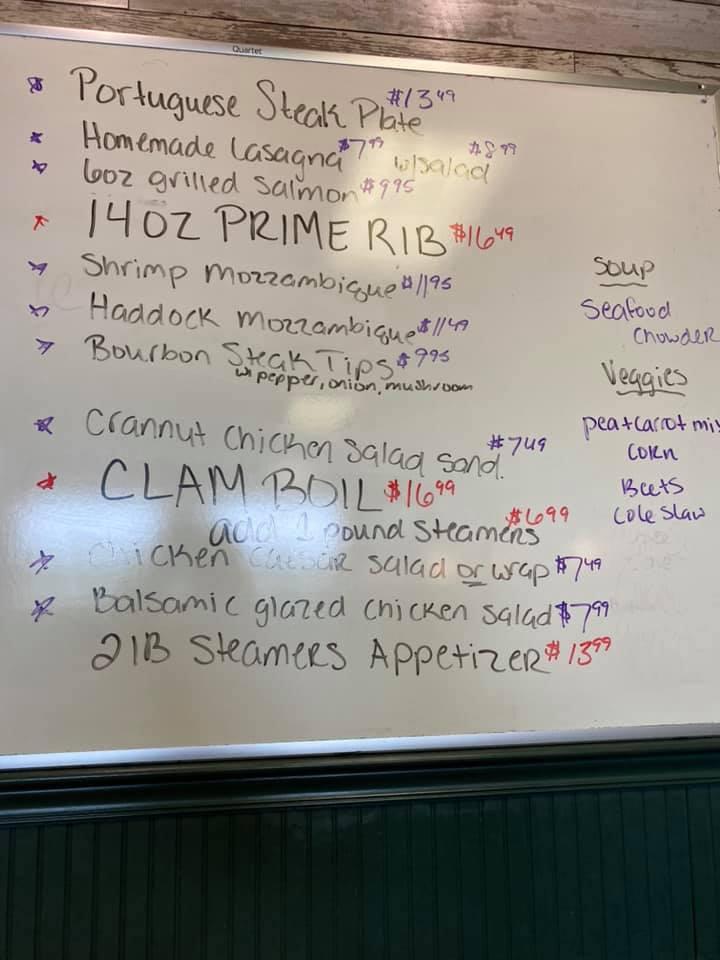 Quartet
* Portuguese Steak Plate $13.49
* Homemade Lasagna $7.99 w/salad $8.99
* 6oz grilled Salmon $9.95
* 14oz PRIME RIB $16.49
* Shrimp Mozzambique $11.95
* Haddock Mozzambique $11.49
* Bourbon Steak Tips $9.95
w/ pepper, onion, mushroom
* Crannut Chicken Salad Sand. $7.49
* CLAM BOIL $16.99
add 1 pound Steamers $6.99
* Chicken Caesar salad or wrap $7.49
* Balsamic glazed chicken salad $7.99
2lB Steamers Appetizer $13.99
Soup
Seafood
Chowder
Veggies
pea+carrot mix
Corn
Beets
Cole Slaw